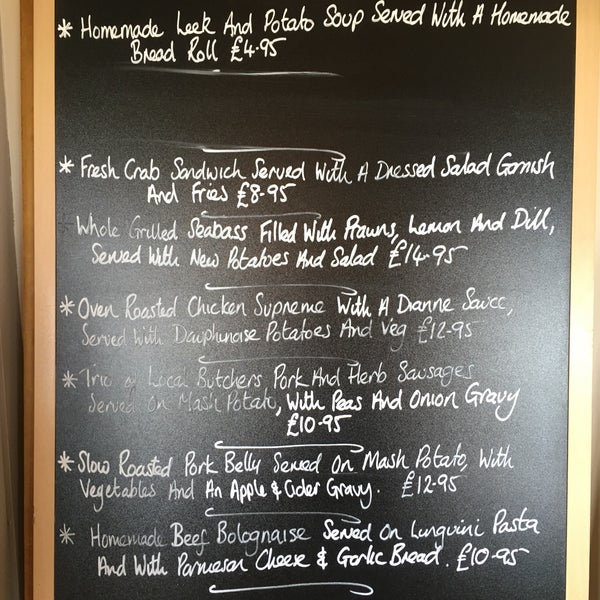 * Homemade Leek And Potato Soup Served With A Homemade
Bread Roll £4.95
* Fresh Crab Sandwich Served With A Dressed Salad Garnish
And Fries £8.95
Whole Grilled Seabass Filled With Prawns, Lemon And Dill,
Served With New Potatoes And Salad £14.95
* Oven Roasted Chicken Supreme With A Dianne Sauce,
Served With Dauphinoise Potatoes And Veg £12.95
* Trio of Local Butchers Pork And Herb Sausages
Served On Mash Potato, With Peas And Onion Gravy
£10.95
* Slow Roasted Pork Belly Served On Mash Potato, With
Vegetables And An Apple & Cider Gravy. £12.95
* Homemade Beef Bolognaise Served On Linguini Pasta
And With Parmesan Cheese & Garlic Bread. £10.95